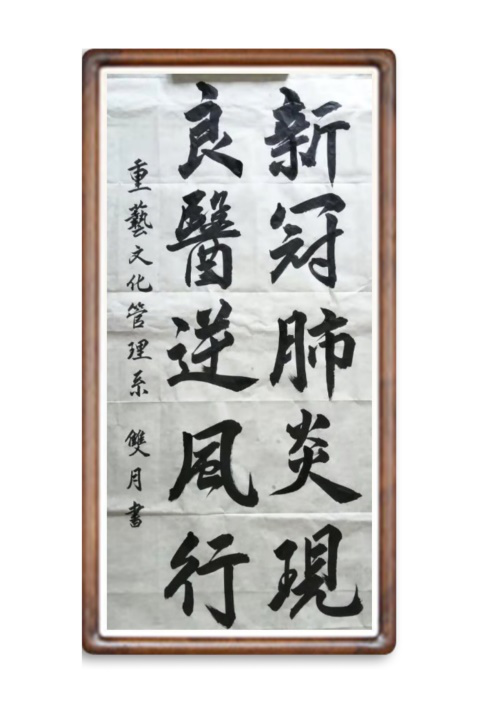 新冠肺炎現
良醫逆風行
重藝文化管理系 雙月書